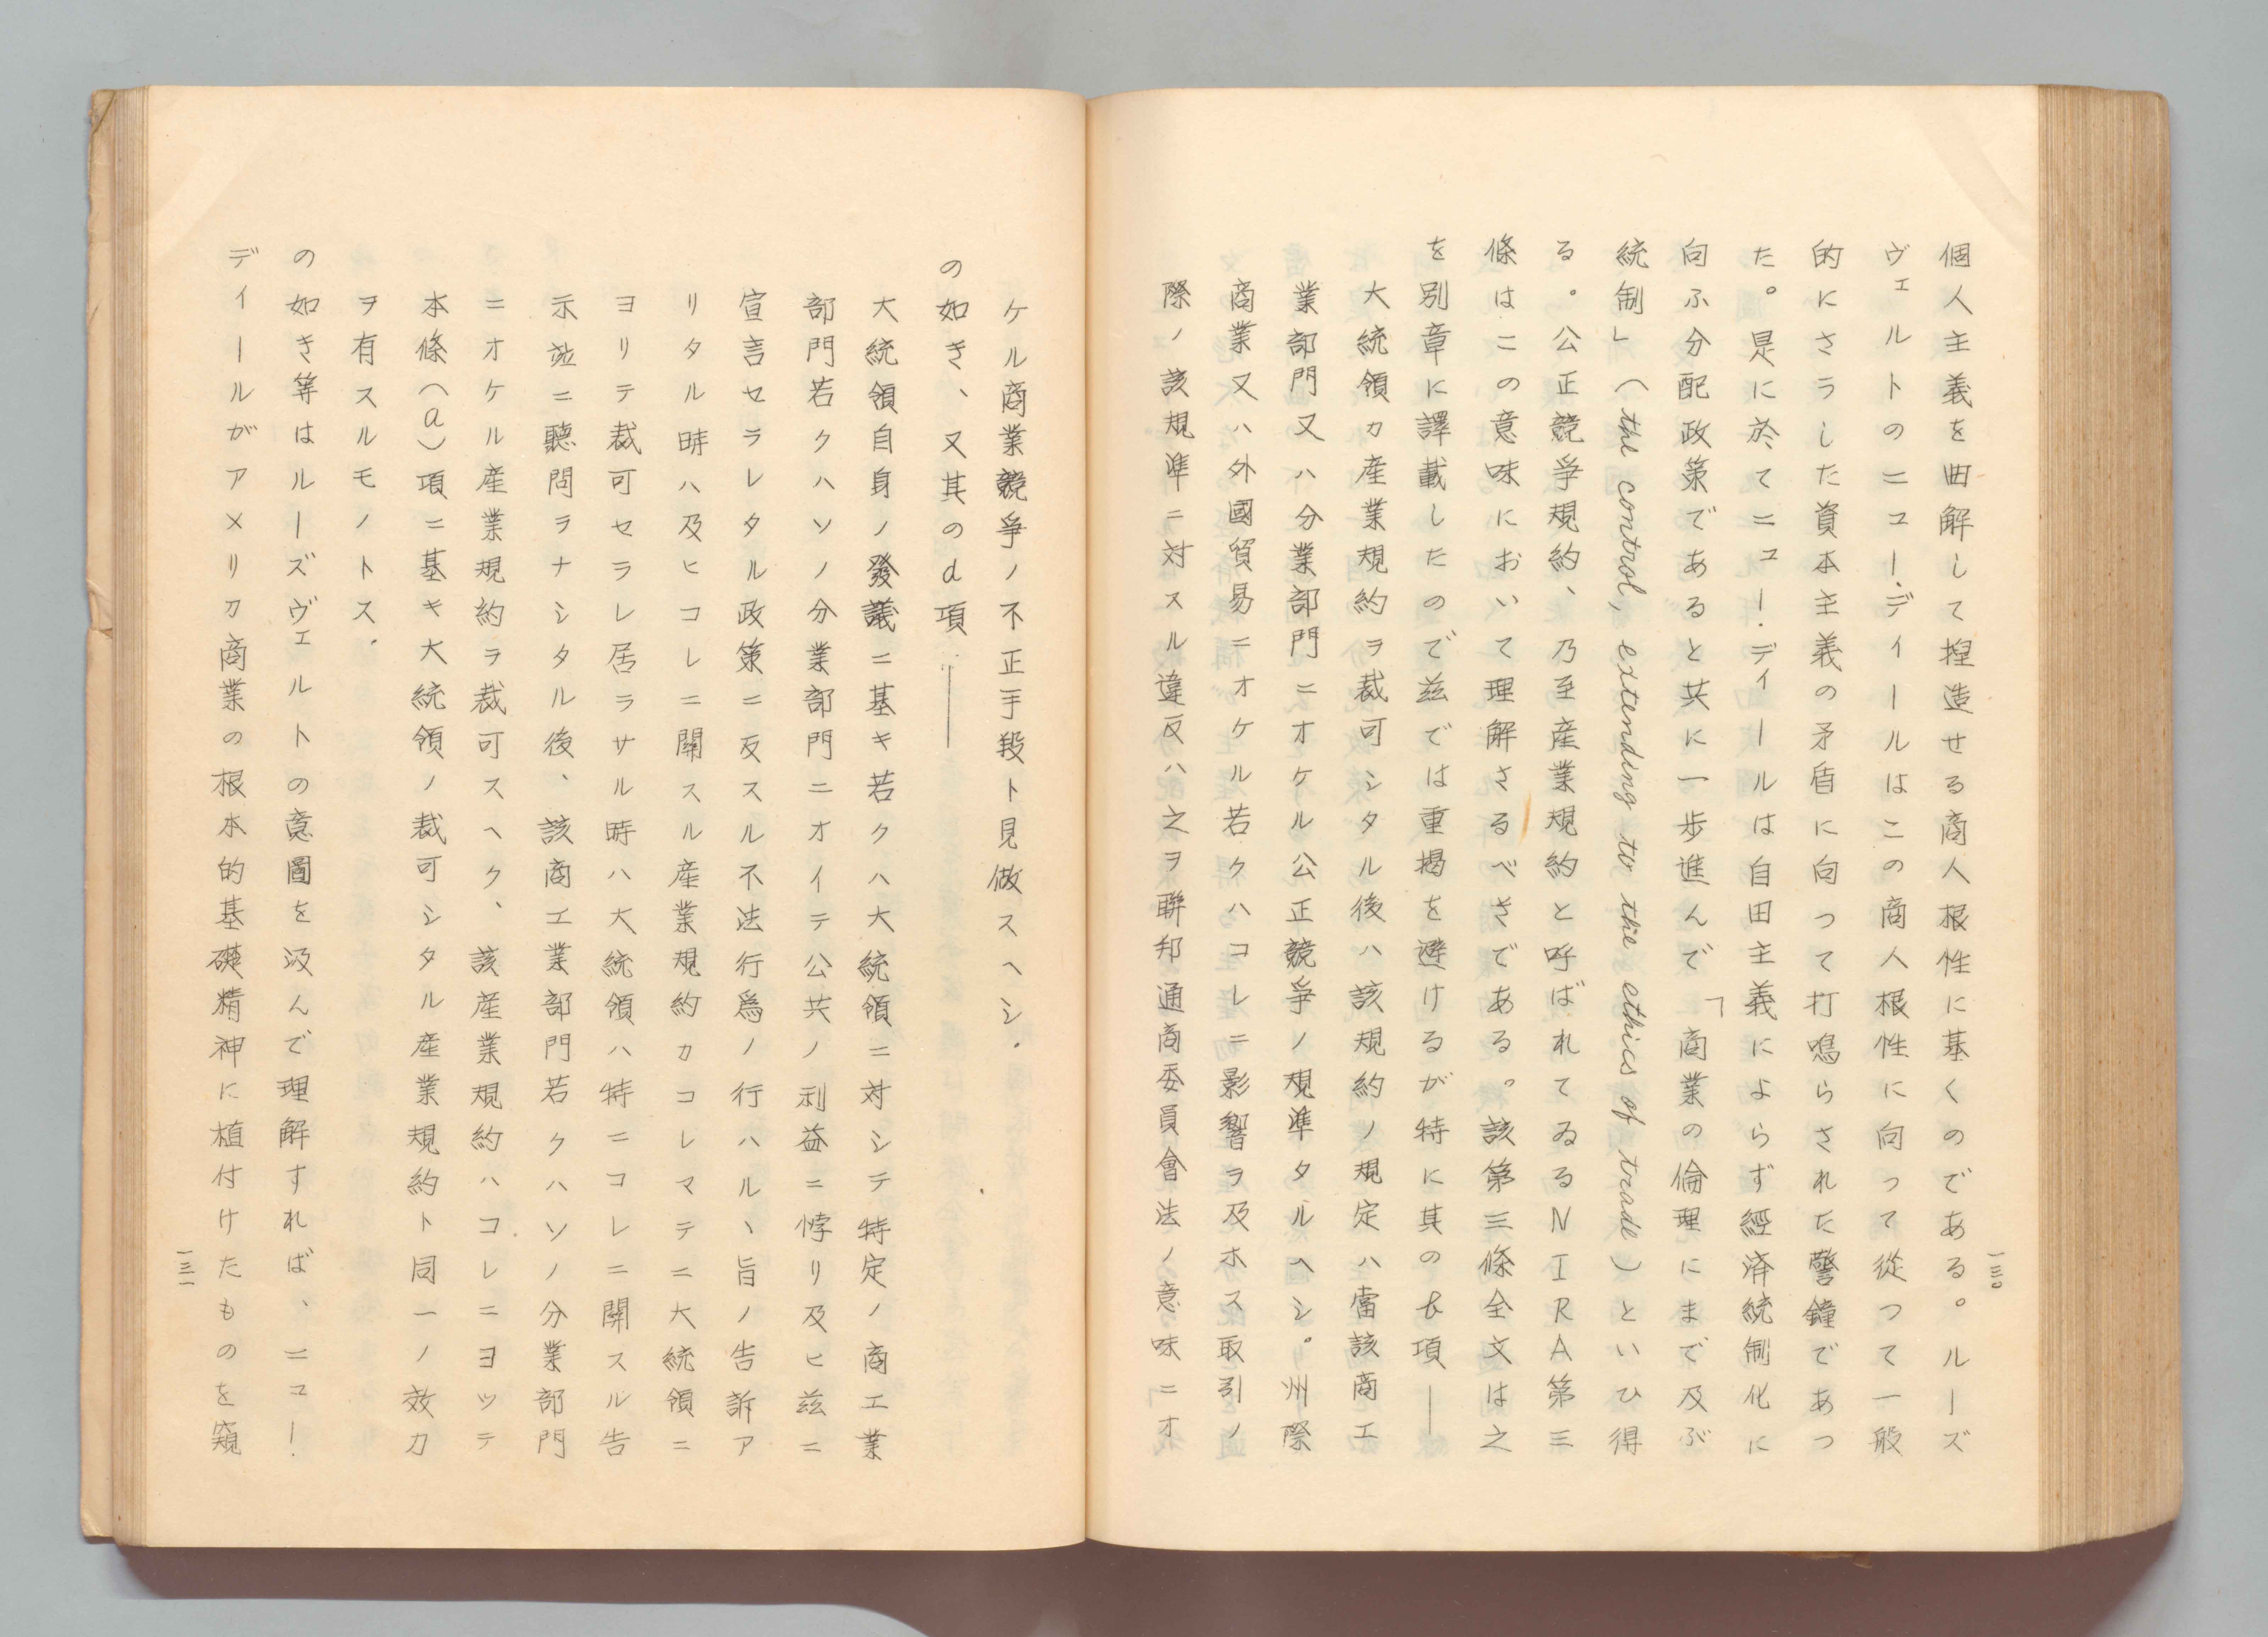 一三〇
個人主義を曲解して捏造せる商人根性に基くのである。ルーズ
ヴェルトのニュー・ディールはこの商人根性に向って從つて一般
的にさらした資本主義の矛盾に向って打鳴らされた警鐘であつ
た。是に於てニュー・ディールは自由主義によらず經済統制化に
向ふ分配政策であると共に一歩進んで「商業の倫理にまで及ぶ
統制」（the control, extending to the ethics of trade）といひ得
る。公正競爭規約、乃至産業規約と呼ばれてゐるNIRA第三
條はこの意味において理解さるべきである。該第三條全文は之
を別章に譯載したので茲では重掲を避けるが特に其のb項——
大統領カ産業規約ヲ裁可シタル後ハ該規約ノ規定ハ當該商工
業部門又ハ分業部門ニオケル公正競爭ノ規準タルヘシ。州際
商業又ハ外國貿易ニオケル若クハコレニ影響ヲ及ホス取引ノ
際ノ該規準ニ対スル違反ハ之ヲ聯邦通商委員會法ノ意味ニオ
ケル商業競爭ノ不正手段ト見做スヘシ.
の如き、又其のd項——
大統領自身ノ發議ニ基キ若クハ大統領ニ対シテ特定ノ商工業
部門若クハソノ分業部門ニオイテ公共ノ利益ニ悖リ及ヒ茲ニ
宣言セラレタル政策ニ反スル不法行爲ノ行ハルヽ旨ノ告訴ア
リタル時ハ及ヒコレニ關スル産業規約カコレマテニ大統領ニ
ヨリテ裁可セラレ居ラサル時ハ大統領ハ特ニコレニ關スル告
示竝ニ聽問ヲナシタル後、該商工業部門若クハソノ分業部門
ニオケル産業規約ヲ裁可スヘク、該産業規約ハコレニヨツテ
本條（a）項ニ基キ大統領ノ裁可シタル産業規約ト同一ノ效力
ヲ有スルモノトス.
の如き等はルーズヴェルトの意圖を汲んで理解すれば、ニュー・
ディールがアメリカ商業の根本的基礎精神に植付けたものを窺
一三一